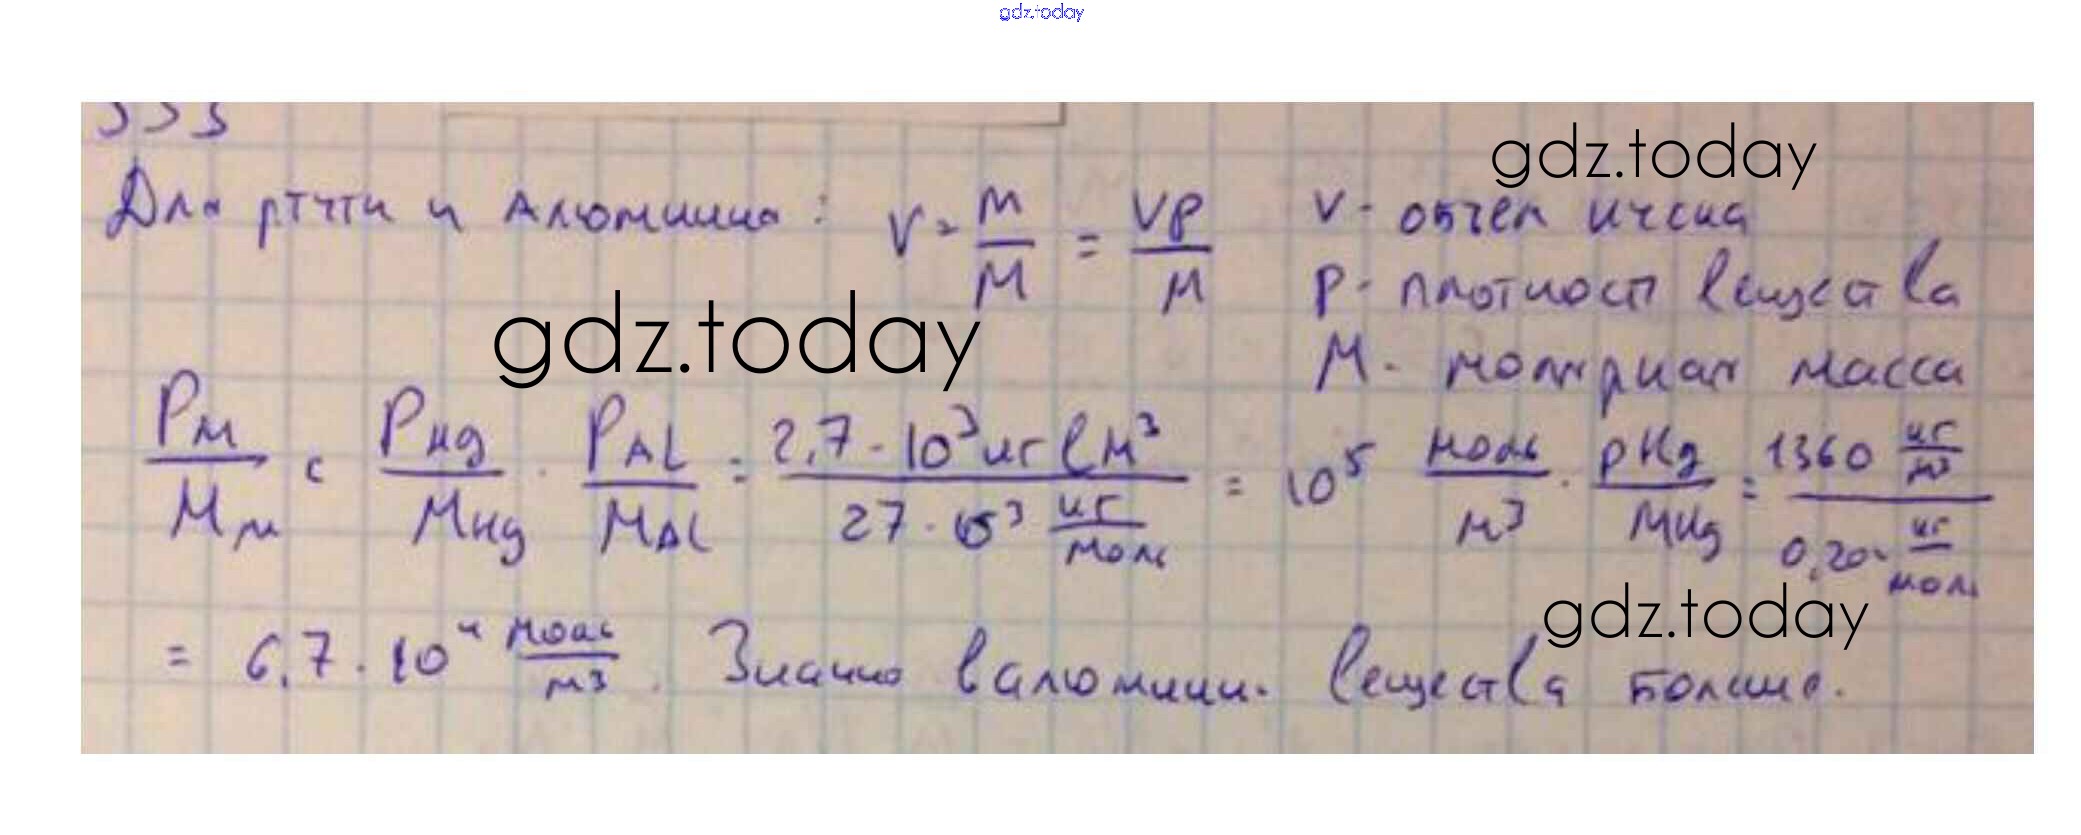 gdz.today
333
gdz.today
Для ртути и алюминия: V = m/M = Vρ/M
V - объем куска
ρ - плотность вещества
gdz.today
M - молярная масса
ρм/Mм < ρHg/MHg · ρAl/MAl = 2,7 · 10³ кг/м³ / 27 · 10³ кг/моль = 10⁵ моль/м³ · ρHg/MHg = 1360 кг/м³ / 0,20 кг/моль
gdz.today
= 6,7 · 10⁴ моль/м³. Значит в алюмини. вещества больше.